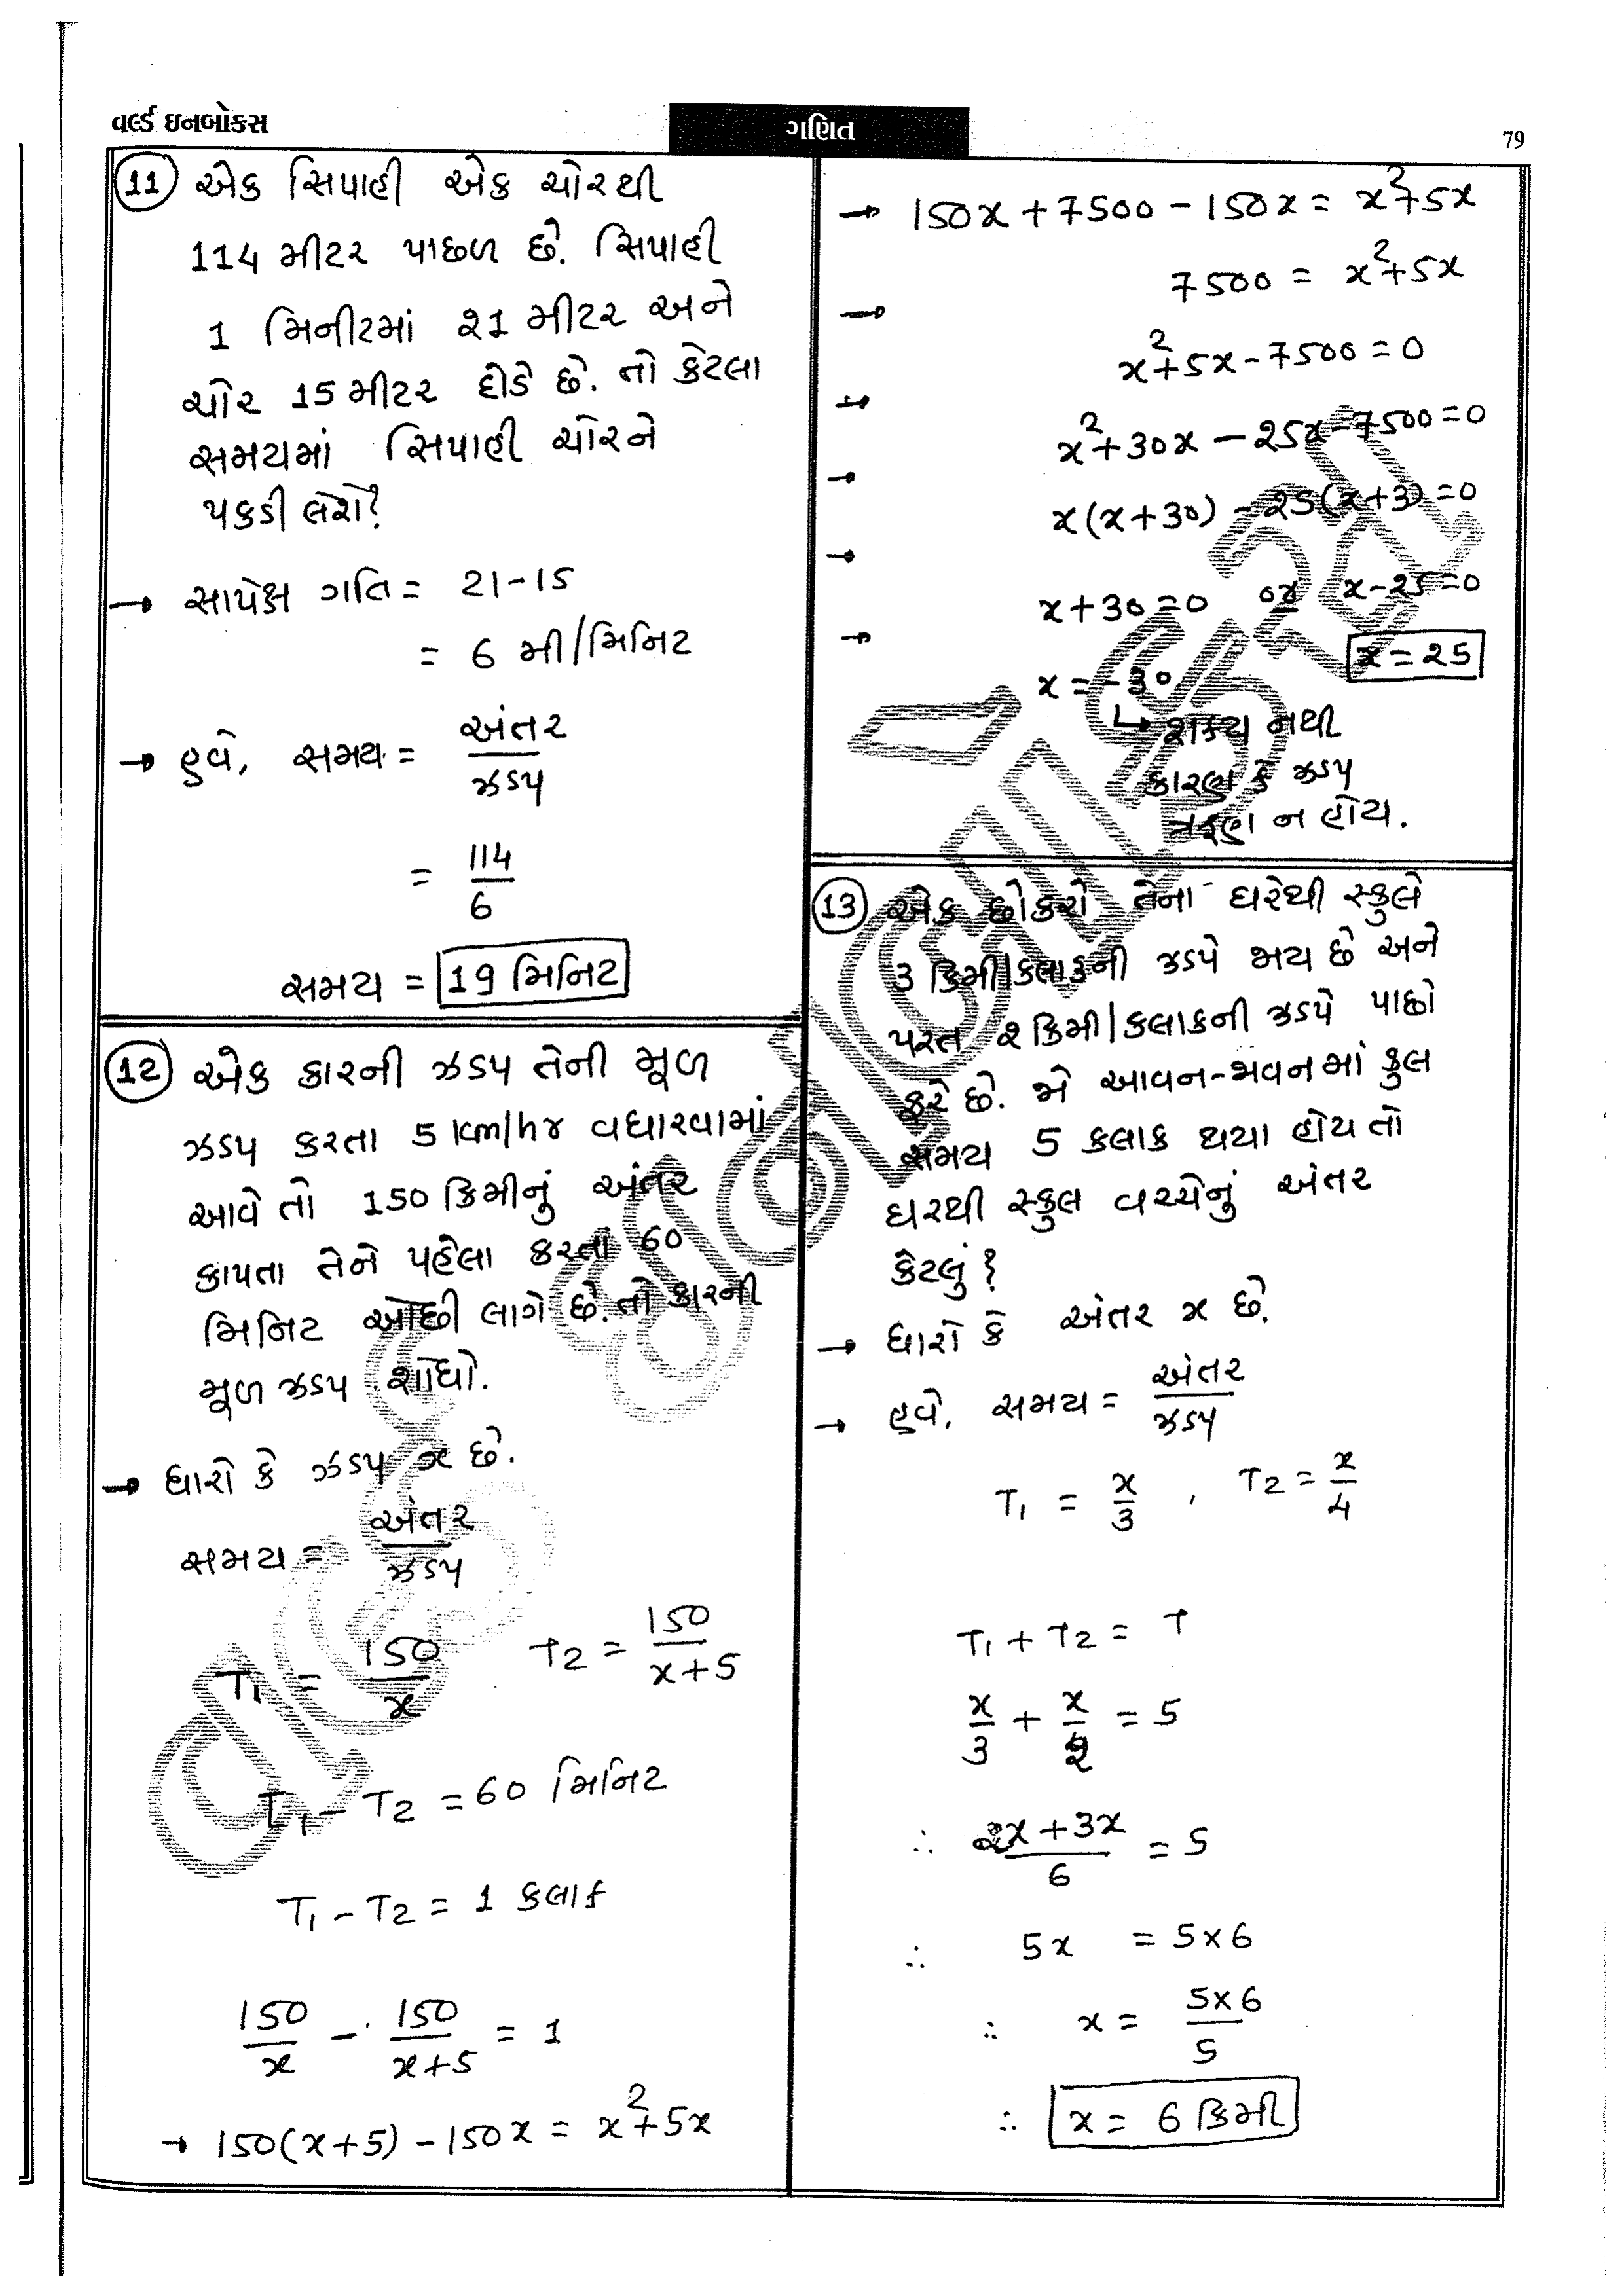 વર્લ્ડ ઇનબોક્સ
ગણિત
79
11 એક સિપાહી એક ચોરથી
114 મીટર પાછળ છે. સિપાહી
1 મિનીટમાં ૨1 મીટર અને
ચોર 15 મીટર દોડે છે. તો કેટલા
સમયમાં સિપાહી ચોરને
પકડી લેશે?
→ સાપેક્ષ ગતિ = 21-15
= 6 મી/મિનિટ
→ હવે, સમય = અંતર / ઝડપ
= 114 / 6
સમય = 19 મિનિટ
12 એક કારની ઝડપ તેની મૂળ
ઝડપ કરતા 5 km/hr વધારવામાં
આવે તો 150 કિમીનું અંતર
કાપતા તેને પહેલા કરતા 60
મિનિટ ઓછી લાગે છે. તો કારની
મૂળ ઝડપ શોધો.
→ ધારો કે ઝડપ x છે.
સમય = અંતર / ઝડપ
T₁ = 150 / x T₂ = 150 / x+5
T₁ - T₂ = 60 મિનિટ
T₁ - T₂ = 1 કલાક
150 / x - 150 / x+5 = 1
→ 150(x+5) - 150x = x²+5x
→ 150x + 7500 - 150x = x²+5x
→ 7500 = x²+5x
→ x²+5x-7500 = 0
→ x²+30x - 25x - 7500 = 0
→ x(x+30) - 25(x+3) = 0
→ x+30 = 0 or x-25 = 0
x = -30 x = 25
↳ શક્ય નથી
કારણ કે ઝડપ
ઋણ ન હોય.
13 એક છોકરો તેના ઘરેથી સ્કુલે
3 કિમી/કલાકની ઝડપે જાય છે અને
પરત ૨ કિમી/કલાકની ઝડપે પાછો
ફરે છે. જો આવન-જવનમાં કુલ
સમય 5 કલાક થયા હોય તો
ઘરથી સ્કુલ વચ્ચેનું અંતર
કેટલું?
→ ધારો કે અંતર x છે.
→ હવે, સમય = અંતર / ઝડપ
T₁ = x / 3 , T₂ = x / 4
T₁ + T₂ = T
x / 3 + x / 2 = 5
∴ 2x + 3x / 6 = 5
∴ 5x = 5x6
∴ x = 5x6 / 5
∴ x = 6 કિમી